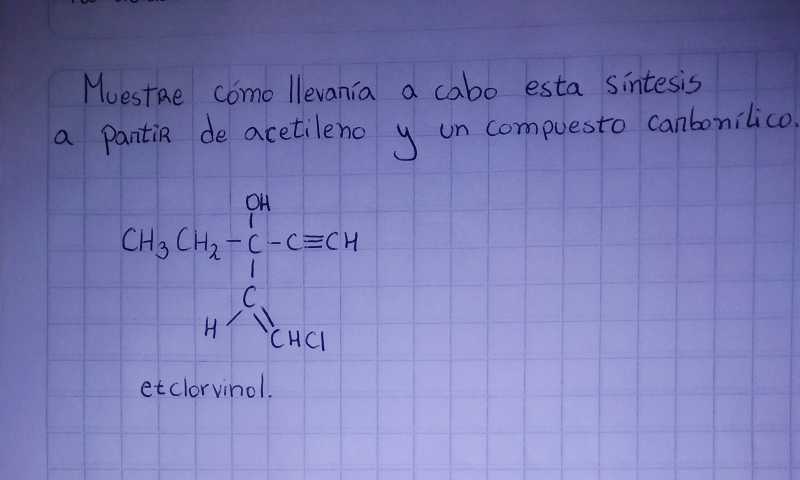 Muestre cómo llevaría a cabo esta síntesis
a partir de acetileno y un compuesto carbonílico.
OH
CH3CH2-C-C≡CH
C
H CHCl
etclorvinol.